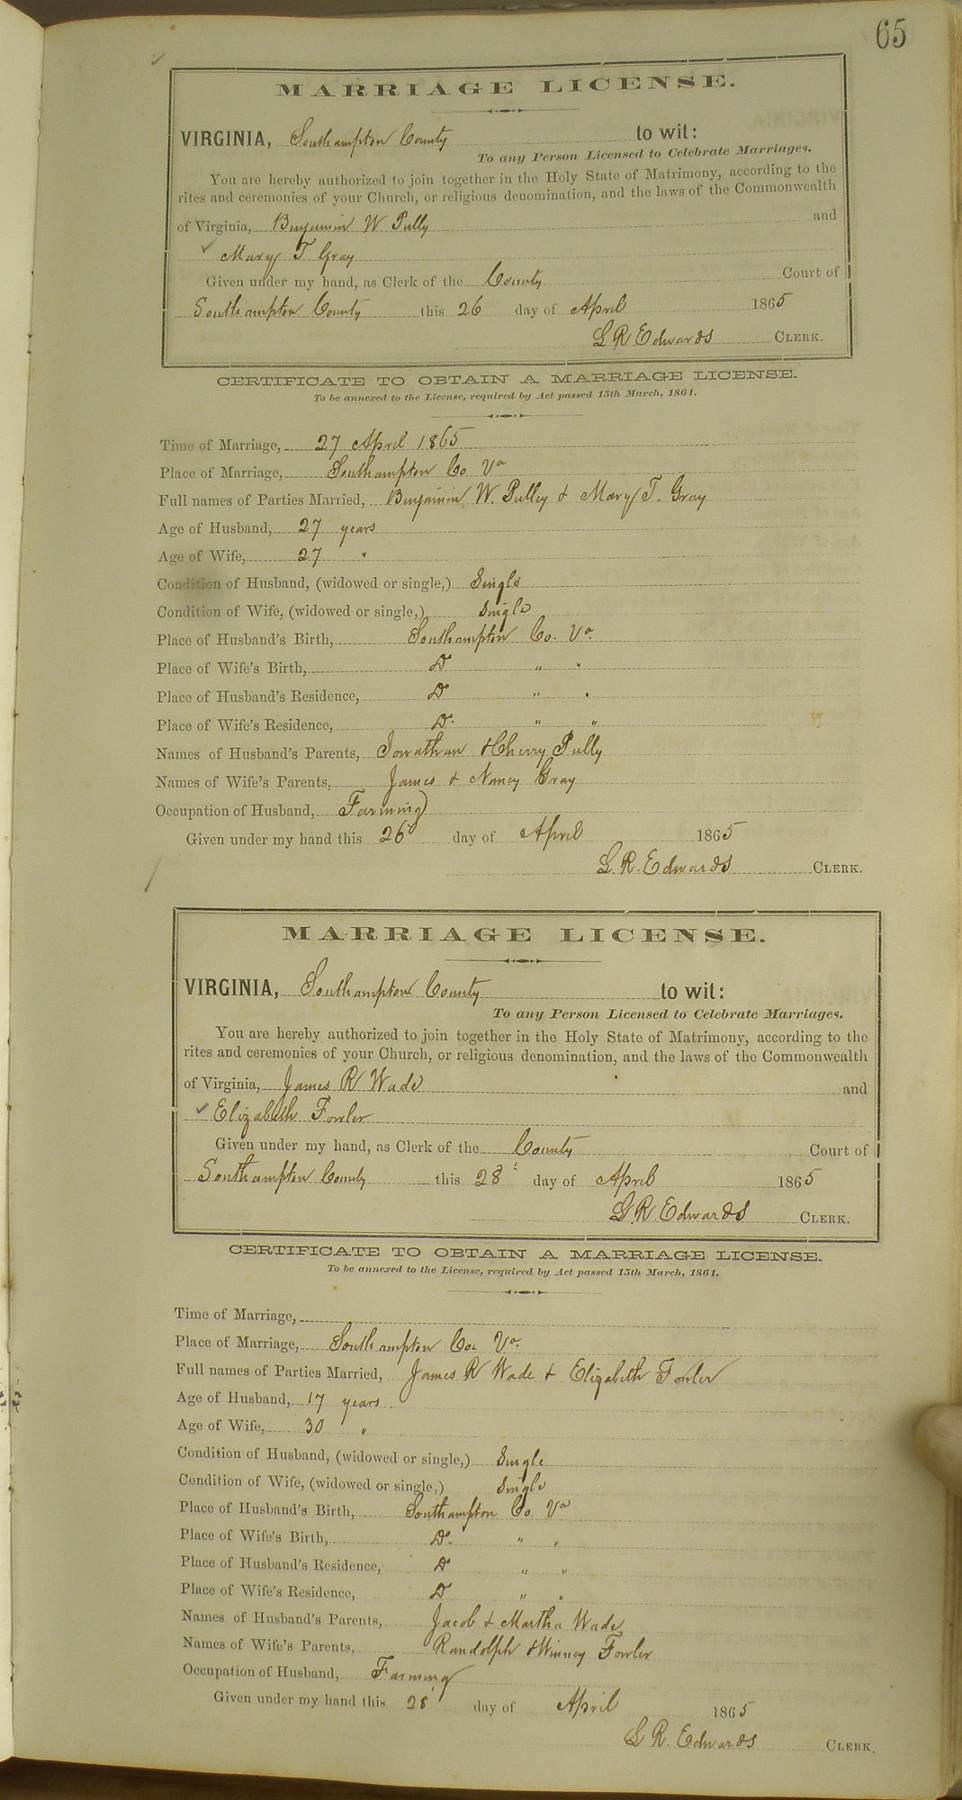 65
MARRIAGE LICENSE.
VIRGINIA, Southampton County to wit:
To any Person Licensed to Celebrate Marriages.
You are hereby authorized to join together in the Holy State of Matrimony, according to the
rites and ceremonies of your Church, or religious denomination, and the laws of the Commonwealth
of Virginia, Benjamin W Pully and
Mary T Gray
Given under my hand, as Clerk of the County Court of
Southampton County this 26 day of April 1865
L R Edwards CLERK.
CERTIFICATE TO OBTAIN A MARRIAGE LICENSE.
To be annexed to the License, required by Act passed 15th March, 1861.
Time of Marriage, 27 April 1865
Place of Marriage, Southampton Co Va
Full names of Parties Married, Benjamin W. Pulley & Mary T. Gray
Age of Husband, 27 years
Age of Wife, 27 "
Condition of Husband, (widowed or single,) Single
Condition of Wife, (widowed or single,) Single
Place of Husband's Birth, Southampton Co. Va.
Place of Wife's Birth, Do " "
Place of Husband's Residence, Do " "
Place of Wife's Residence, Do. " "
Names of Husband's Parents, Jonathan & Cherry Pully
Names of Wife's Parents, James & Nancy Gray
Occupation of Husband, Farming
Given under my hand this 26 day of April 1865
L. R. Edwards CLERK.
MARRIAGE LICENSE.
VIRGINIA, Southampton County to wit:
To any Person Licensed to Celebrate Marriages.
You are hereby authorized to join together in the Holy State of Matrimony, according to the
rites and ceremonies of your Church, or religious denomination, and the laws of the Commonwealth
of Virginia, James R Wade and
Elizabeth Fowler
Given under my hand, as Clerk of the County Court of
Southampton County this 28 day of April 1865
L. R. Edwards CLERK.
CERTIFICATE TO OBTAIN A MARRIAGE LICENSE.
To be annexed to the License, required by Act passed 15th March, 1861.
Time of Marriage,
Place of Marriage, Southampton Co. Va.
Full names of Parties Married, James R Wade & Elizabeth Fowler
Age of Husband, 17 years
Age of Wife, 30 "
Condition of Husband, (widowed or single,) Single
Condition of Wife, (widowed or single,) Single
Place of Husband's Birth, Southampton Co. Va
Place of Wife's Birth, Do. " "
Place of Husband's Residence, Do " "
Place of Wife's Residence, Do " "
Names of Husband's Parents, Jacob & Martha Wade
Names of Wife's Parents, Randolph & Winney Fowler
Occupation of Husband, Farming
Given under my hand this 28 day of April 1865
L R. Edwards CLERK.